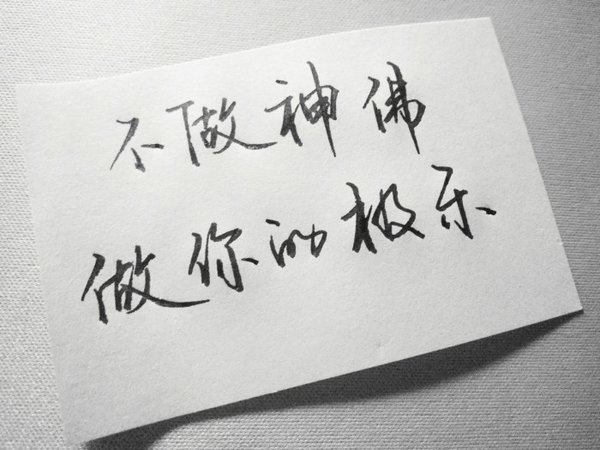 不做神佛
做你的极乐